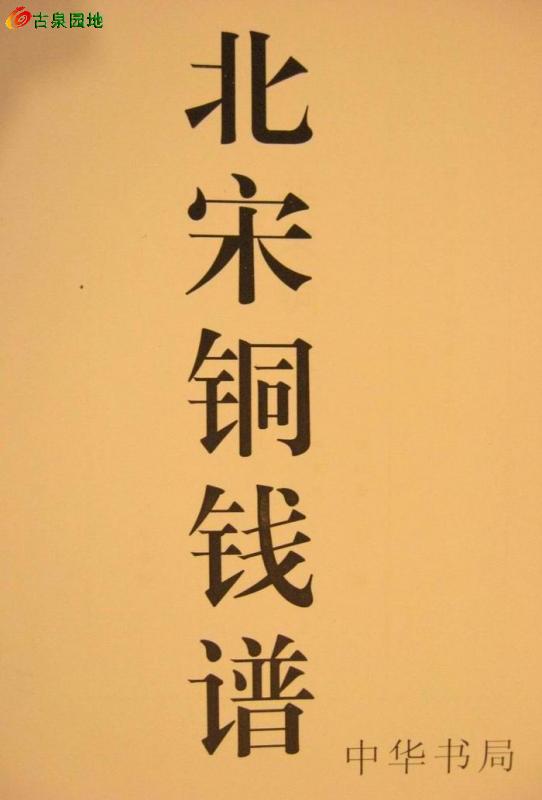 古泉园地
北宋铜钱谱
中华书局